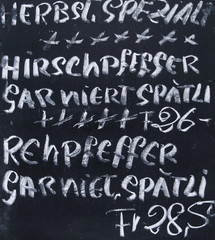 HERBST. SPEZIALI
HIRSCHPFEFFER
GARNIERT SPÄTLI
Fr 26-
REHPFEFFER
GARNIET. SPÄTLI
Fr 28,5